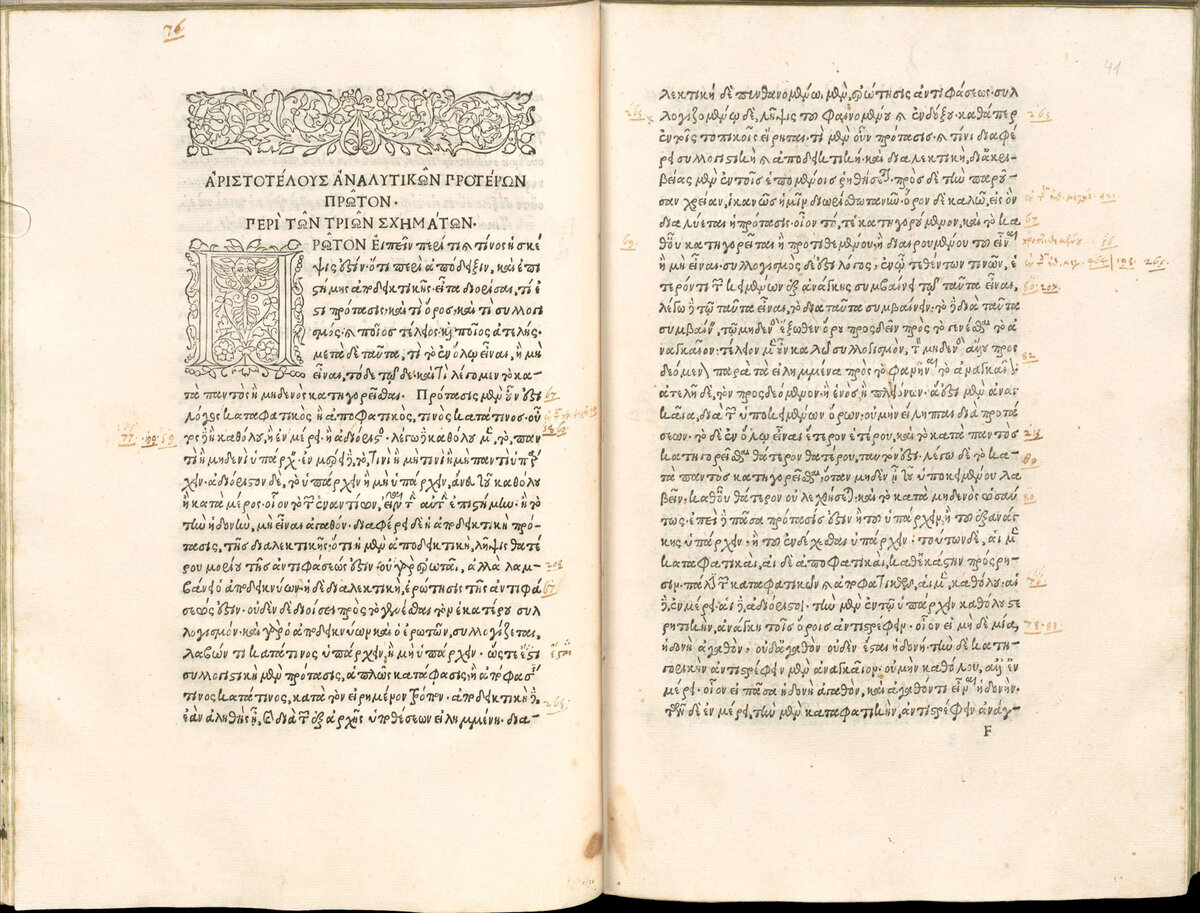 76
ἈΡΙΣΤΟΤΈΛΟΥΣ ἈΝΑΛΥΤΙΚΩ͂Ν ΠΡΟΤΈΡΩΝ
ΠΡΩ͂ΤΟΝ·
ΠΕΡῚ ΤΩ͂Ν ΤΡΙΩ͂Ν ΣΧΗΜΆΤΩΝ·
ΠΡΩ͂ΤΟΝ Εἰπεῖν περὶ τί καὶ τίνος ἡ σκέ
ψις ἐστίν· ὅτι περὶ ἀπόδειξιν, καὶ ἐπι
στήμης ἀποδεικτικῆς· εἶτα διορίσαι, τί ἐ
στι πρότασις· καὶ τί ὅρος· καὶ τί συλλογι
σμός· καὶ ποῖος τέλειος· καὶ ποῖος ἀτελής·
μετὰ δὲ ταῦτα, τί τὸ ἐν ὅλῳ εἶναι, ἢ μὴ
εἶναι, τόδε τῷδε· καὶ τί λέγομεν τὸ κα
τὰ παντὸς ἢ μηδενὸς κατηγορεῖσθαι· Πρότασις μὲν οὖν ἐστὶ
λόγος καταφατικὸς, ἢ ἀποφατικὸς, τινὸς κατά τινος· οὗ
τος δὲ ἢ καθόλου, ἢ ἐν μέρει, ἢ ἀδιόριστος· λέγω δὲ καθόλου μὲν, τὸ, παν
τὶ ἢ μηδενὶ ὑπάρχειν· ἐν μέρει δὲ, τὸ τινὶ ἢ μὴ τινὶ ἢ μὴ παντὶ ὑπάρ
χειν· ἀδιόριστον δὲ, τὸ ὑπάρχειν ἢ μὴ ὑπάρχειν, ἄνευ τοῦ καθόλου
ἢ κατὰ μέρος· οἷον τὸ τῶν ἐναντίων, εἶναι τὴν αὐτὴν ἐπιστήμην· ἢ τὸ
τὴν ἡδονὴν, μὴ εἶναι ἀγαθόν· διαφέρει δὲ ἡ ἀποδεικτικὴ πρό-
τασις, τῆς διαλεκτικῆς· ὅτι ἡ μὲν ἀποδεικτικὴ, λῆψις θατέ
ρου μορίου τῆς ἀντιφάσεώς ἐστιν· οὐ γὰρ ἐρωτᾷ, ἀλλὰ λαμ-
βάνει ὁ ἀποδεικνύων· ἡ δὲ διαλεκτικὴ, ἐρώτησις τῆς ἀντιφά
σεώς ἐστιν· οὐδὲν δὲ διοίσει πρὸς τὸ γενέσθαι τὸν ἑκατέρου συλ
λογισμόν· καὶ γὰρ ὁ ἀποδεικνύων καὶ ὁ ἐρωτῶν, συλλογίζεται,
λαβών τι κατά τινος ὑπάρχειν ἢ μὴ ὑπάρχειν· ὥστε ἔσται
συλλογιστικὴ μὲν πρότασις, ἁπλῶς κατάφασις, ἢ ἀπόφασίς
τινος κατά τινος, κατὰ τὸν εἰρημένον τρόπον· ἀποδεικτικὴ δὲ,
ἐὰν ἀληθὴς ᾖ, καὶ διὰ τῶν ἐξ ἀρχῆς ὑποθέσεων εἰλημμένη· δια-
67
208
67
265
41
λεκτικὴ δὲ πυνθανομένῳ, μὲν, ἐρώτησις ἀντιφάσεως· συλ
λογιζομένῳ δὲ, λῆψις τοῦ φαινομένου καὶ ἐνδόξου· καθάπερ
ἐν τοῖς τοπικοῖς εἴρηται· τί μὲν οὖν πρότασις, καὶ τίνι διαφέ
ρει συλλογιστικὴ καὶ ἀποδεικτικὴ, καὶ διαλεκτικὴ, δι' ἀκρι-
βείας μὲν ἐν τοῖς ἑπομένοις ῥηθήσεται· πρὸς δὲ τὴν παροῦ-
σαν χρείαν, ἱκανῶς ἡμῖν διωρίσθω τὰ νῦν· ὅρον δὲ καλῶ, εἰς ὃν
διαλύεται ἡ πρότασις· οἷον τό, τε κατηγορούμενον, καὶ τὸ κα
θ' οὗ κατηγορεῖται ἢ προστιθεμένου, ἢ διαιρουμένου τοῦ εἶναι
ἢ μὴ εἶναι· συλλογισμὸς δέ ἐστι λόγος, ἐν ᾧ τεθέντων τινῶν, ἕ
τερόν τι τῶν κειμένων ἐξ ἀνάγκης συμβαίνει τῷ ταῦτα εἶναι,
λέγω δὲ τῷ ταῦτα εἶναι, τὸ διὰ ταῦτα συμβαίνειν· τὸ δὲ διὰ ταῦτα
συμβαίνειν, τὸ μηδενὸς ἔξωθεν ὅρου προσδεῖν πρὸς τὸ γενέσθαι τὸ ἀ
ναγκαῖον· τέλειον μὲν οὖν καλῶ συλλογισμὸν, τὸν μηδενὸς ἄλλου προσ
δεόμενον παρὰ τὰ εἰλημμένα πρὸς τὸ φανῆναι τὸ ἀναγκαῖον·
ἀτελῆ δὲ, τὸν προσδεόμενον ἢ ἑνὸς ἢ πλειόνων· ἅ ἐστι μὲν ἀναγ
καῖα, διὰ τῶν ὑποκειμένων ὅρων· οὐ μὴν εἴληπται διὰ προτά
σεων· τὸ δὲ ἐν ὅλῳ εἶναι ἕτερον ἑτέρου, καὶ τὸ κατὰ παντὸς
κατηγορεῖσθαι θάτερον θατέρου, ταυτόν ἐστι· λέγω δὲ τὸ κα
τὰ παντὸς κατηγορεῖσθαι, ὅταν μηδὲν ᾖ τοῦ ὑποκειμένου λα
βεῖν, καθ' οὗ θάτερον οὐ λεχθήσεται· καὶ τὸ κατὰ μηδενὸς ὡσαύ
τως· ἐπεὶ δὲ πᾶσα πρότασίς ἐστιν ἢ τοῦ ὑπάρχειν, ἢ τοῦ ἐξ ἀνάγ
κης ὑπάρχειν· ἢ τοῦ ἐνδέχεσθαι ὑπάρχειν· τούτων δὲ, αἱ μὲν
καταφατικαὶ, αἱ δὲ ἀποφατικαὶ, καθ' ἑκάστην πρόσρη-
σιν· πάλιν δὲ τῶν καταφατικῶν καὶ ἀποφατικῶν, αἱ μὲν, καθόλου· αἱ
δὲ, ἐν μέρει· αἱ δὲ, ἀδιόριστοι· τὴν μὲν ἐν τῷ ὑπάρχειν καθόλου στε
ρητικὴν, ἀνάγκη τοῖς ὅροις ἀντιστρέφειν· οἷον εἰ μηδεμία,
ἡδονὴ ἀγαθὸν· οὐδ' ἀγαθὸν οὐδὲν ἔσται ἡδονή· τὴν δὲ κατη-
γορικὴν ἀντιστρέφειν μὲν ἀναγκαῖον· οὐ μὴν καθόλου, ἀλλ' ἐν
μέρει· οἷον εἰ πᾶσα ἡδονὴ ἀγαθὸν, καὶ ἀγαθόν τι εἶναι ἡδονήν·
τῶν δὲ ἐν μέρει, τὴν μὲν καταφατικὴν, ἀντιστρέφειν ἀνάγ-
F
265
265
69
67
80·207
82
218
80
80
78·83